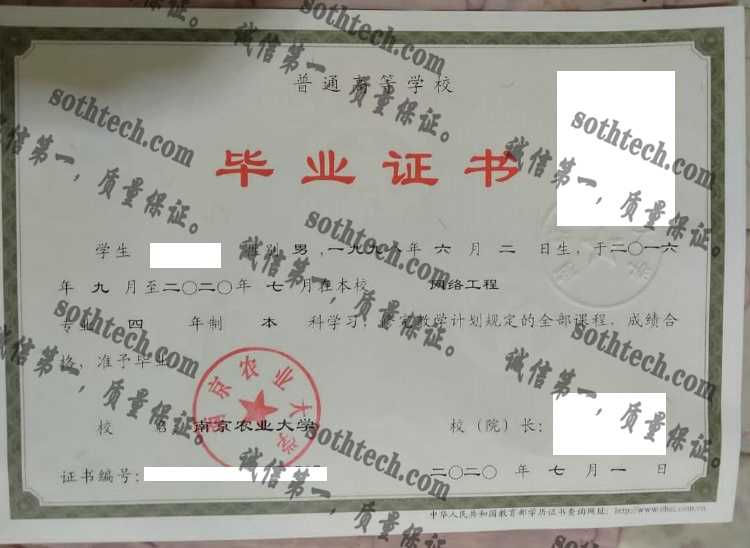 普通高等学校
毕业证书
学生 性别 男 ,一九九八年 六 月 二 日生，于二〇一六
年 九 月至二〇二〇年 七 月在本校 网络工程
专业 四 年制 本 科学习，修完教学计划规定的全部课程，成绩合
格，准予毕业
南京农业大学
校 名：南京农业大学 校（院）长：
证书编号： 二〇二〇 年 七 月 一 日
中华人民共和国教育部学历证书查询网址：http://www.chsi.com.cn
sothtech.com
诚信第一，质量保证。
sothtech.com
诚信第一，质量保证。
sothtech.com
诚信第一，质量保证。
sothtech.com
诚信第一，质量保证。
sothtech.com
诚信第一，质量保证。
sothtech.com
诚信第一，质量保证。
sothtech.com
诚信第一，质量保证。
sothtech.com
诚信第一，质量保证。